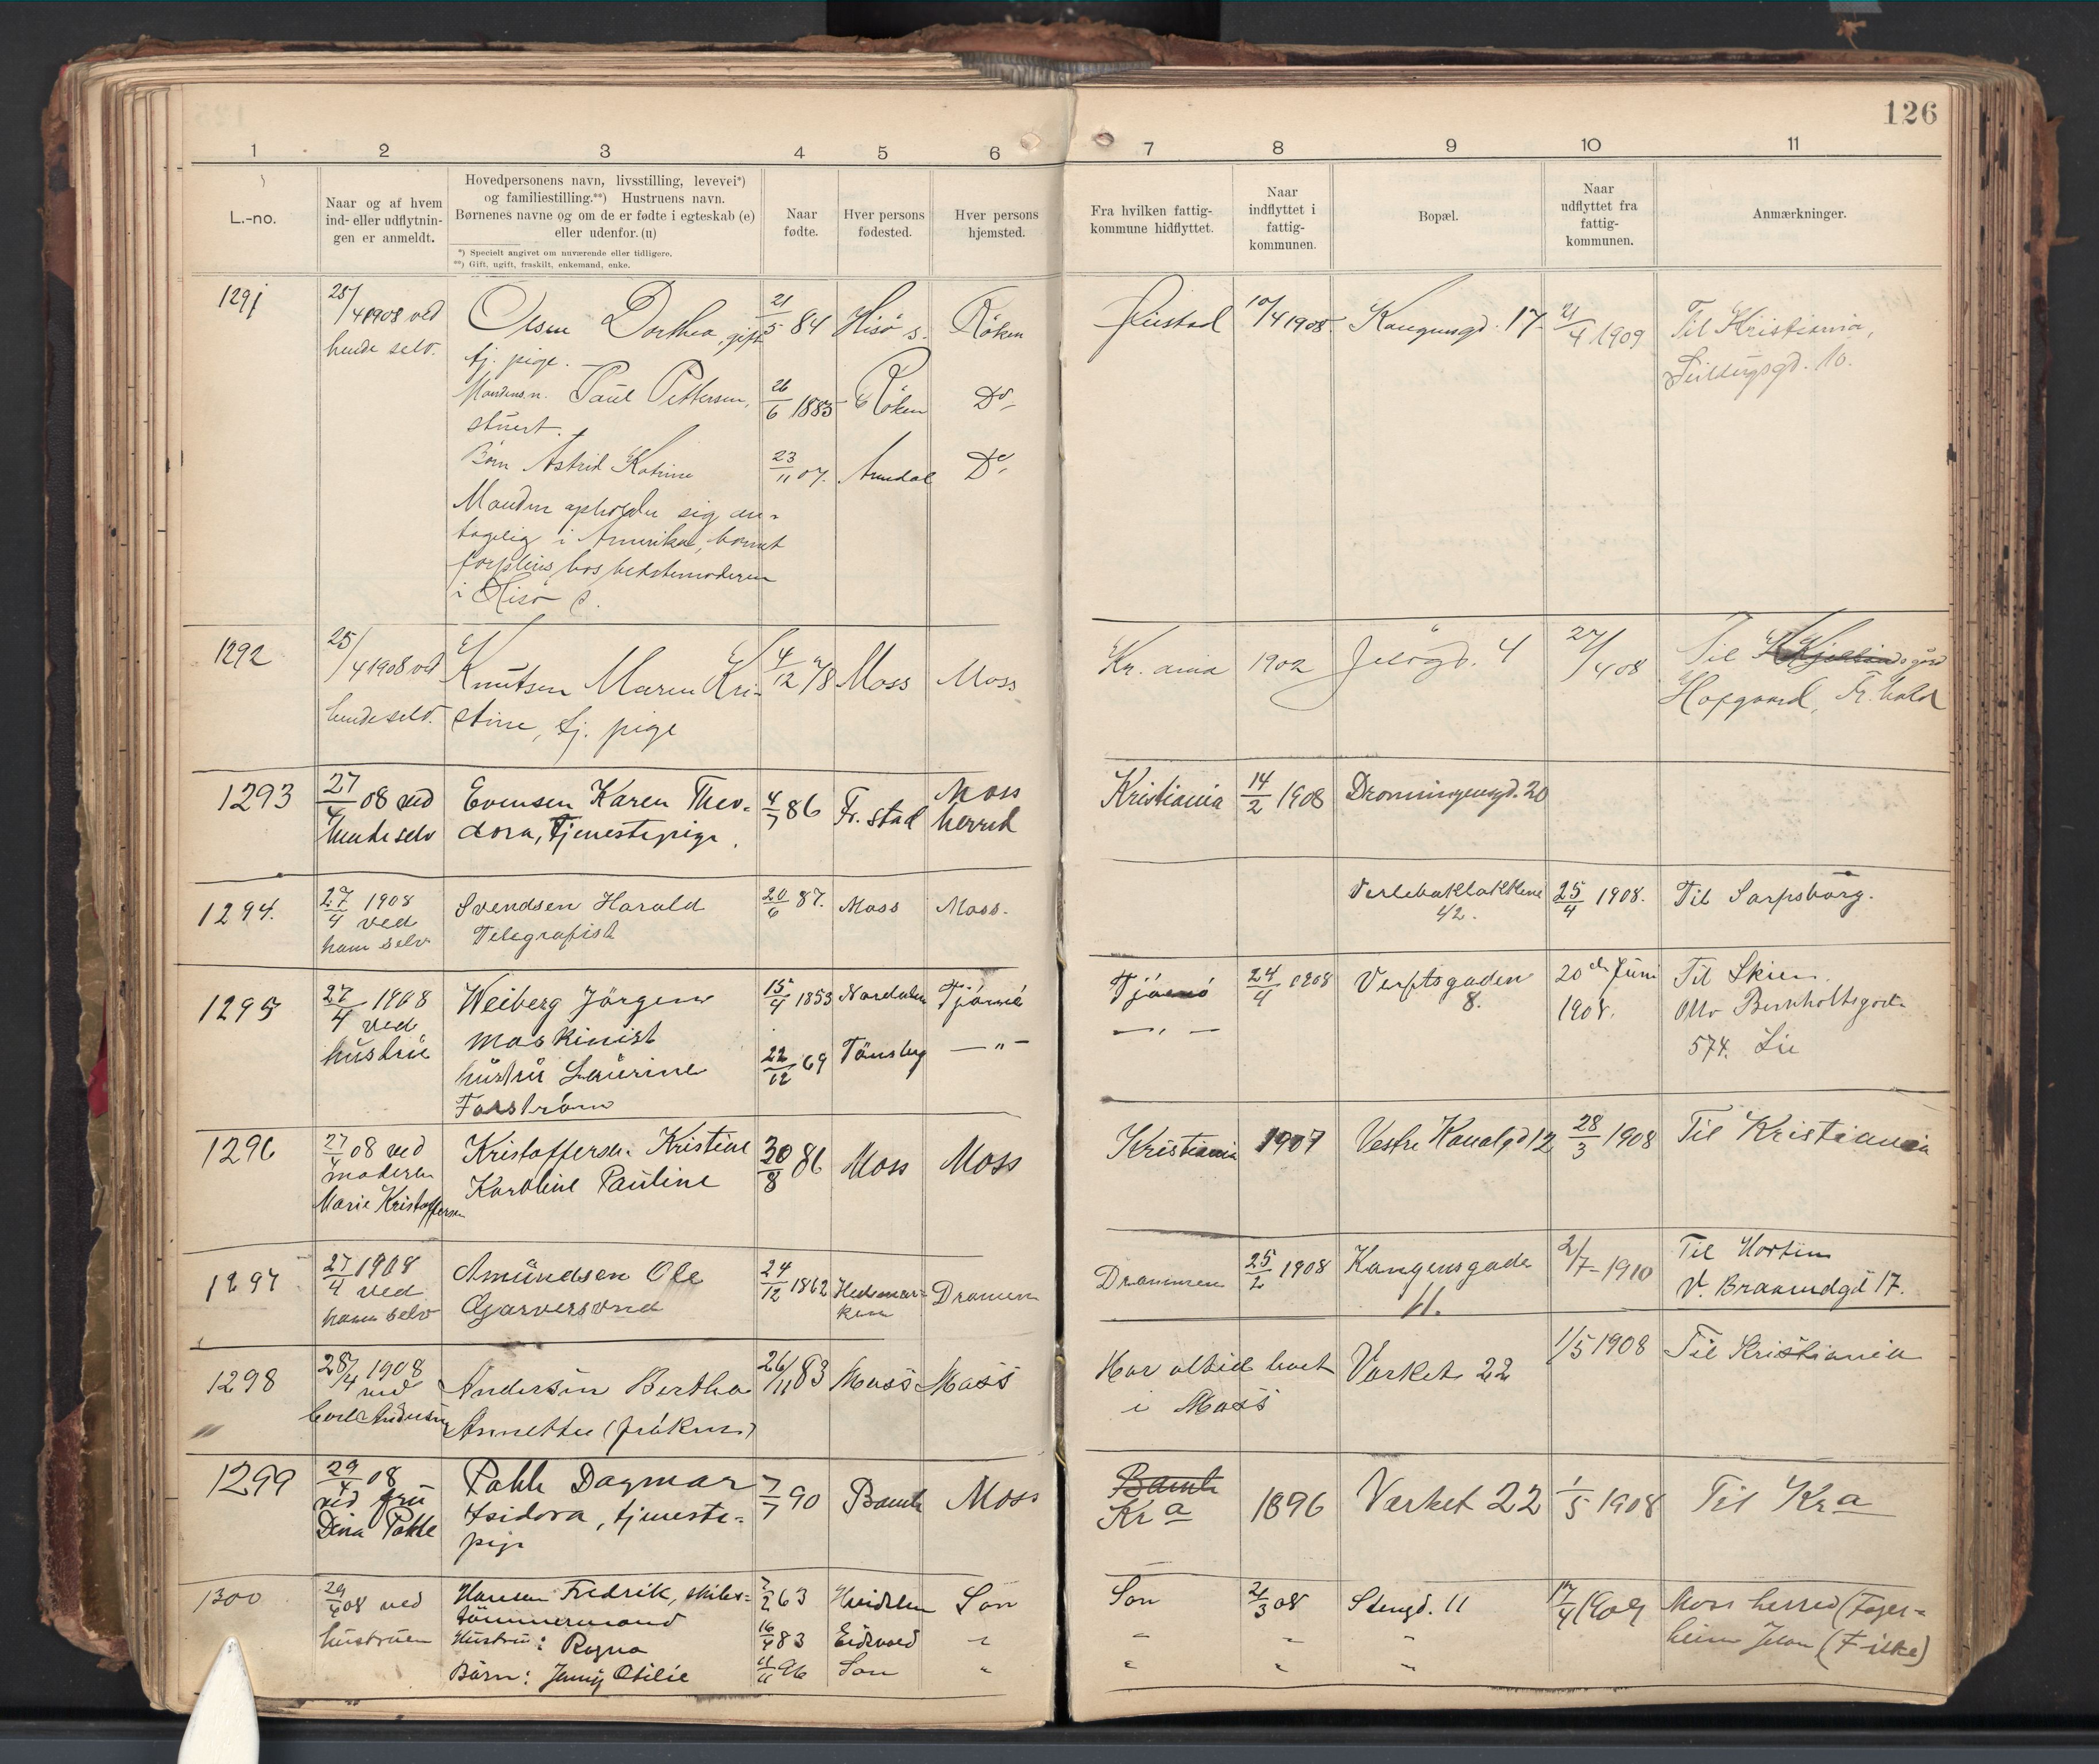 126
1 2 3 4 5 6 7 8 9 10 11
L.-no.
Naar og af hvem
ind- eller udflytnin-
gen er anmeldt.
Hovedpersonens navn, livsstilling, levevei*)
og familiestilling.**) Hustruens navn.
Børnenes navne og om de er fødte i egteskab (e)
eller udenfor. (u)
*) Specielt angivet om nuværende eller tidligere.
**) Gift, ugift, fraskilt, enkemand, enke.
Naar
fødte.
Hver persons
fødested.
Hver persons
hjemsted.
Fra hvilken fattig-
kommune hidflyttet.
Naar
indflyttet i
fattig-
kommunen.
Bopæl.
Naar
udflyttet fra
fattig-
kommunen.
Anmærkninger.
1291 25/4 1908 ved Olsen Dorthea, gift 21/5 84 Hisö s. Röken 10/4 1908. Kongensgd. 17. 21/4 1909 Til Kristiania,
hende selv. tj. pige. 10.
Mandens n. Paul Pettersen, 26/6 1883 Röken Do
stuert.
Börn Astrid Katrine 23/11 07. Arendal Do
Manden opholder sig an-
tagelig i Amerika, barnet
forpleies hos bedstemoderen
i Hisö s.
1292 25/4 1908 ved Knutsen Maren Kri- 4/12 78 Moss Moss Kr.ania 1902 Jelögd. 4 27/4 08 Til
hende selv. stine, tj. pige Hafgaard, Fr.hald
1293 27/4 08 ved Evensen Karen Theo- 4/7 86 Fr.stad Moss Kristiania 14/2 1908 Dronningensgd. 20
hende selv dora, Tjenestepige. herred
1294. 27/4 1908 Svendsen Harald 20/6 87. Moss Moss. Verlebakløkkene 25/4 1908. Til Sarpsborg.
ved Telegrafist 42.
ham selv
1295 27/4 1908 Weiberg Jörgen 15/4 1853 Tjömö Tjömö 24/4 1908 Verftsgaden 20de Juni Til Skien
ved maskinist 8. 1908. Otto
hustru hustru Laurine 22/12 69 Tönsberg — " — — " — 574. Lie
Farström
1296 27/4 08 ved Kristoffersen Kristine 30/8 86 Moss Moss Kristiania 1907 Vestre Kanalgd 12 28/3 1908 Til Kristiania
moderen Karoline Pauline
Marie Kristoffersen
1297 27/4 1908 Amundsen Ole 24/12 1862 Hedemar- Drammen Drammen 25/2 1908 Kongensgade 2/7 - 1910 Til Horten
ved Garversvend ken 11. V. Braarudgd 17.
ham selv
1298 28/4 1908 Andersen Bertha 26/11 83 Moss Moss Har altid boet Værket 22 1/5 1908 Til Kristiania
ved Annette (fröken) i Moss
Carl Andersen
1299 29/4 08 Pahle Dagmar 7/7 90 Bamle Moss Bamle 1896 Værket 22 1/5 1908 Til Kra
ved fru Isidora, tjeneste- Kra
Dina Pahle pige
1300 29/4 08 ved Hansen Fredrik, skibs- 7/2 63 Hvidsten Son Son 21/3 08 Stengd. 11 17/4 1909 Moss herred (Fager-
hustruen tömmermand heim Jelöen (Filke)
Hustru: Ragna 16/4 83 Eidsvold " " " "
Börn: Jenny Otilie 11/11 96 Son " " " "